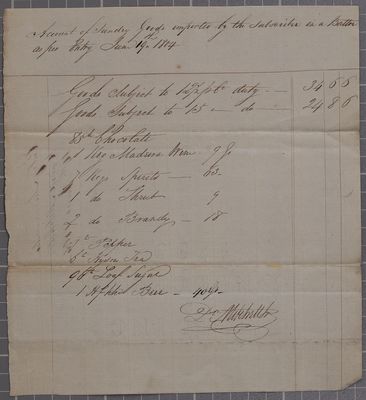 Account of Sundry Goods imported by the Subscriber in a Batteau
as per Entry June 19th 1804
Goods Subject to 12½ pCt duty — 34 6 6
Goods Subject to 15 — do — 24 8 6
85 lb Chocolate
1 Keg Madeira Wine 9 G
7 Kegs Spirits — 63
1 do Shrub 9
2 do Brandy — 18
6 lb Hyson Tea
96 lb Loaf Sugar
1 Hf bbl Beer —